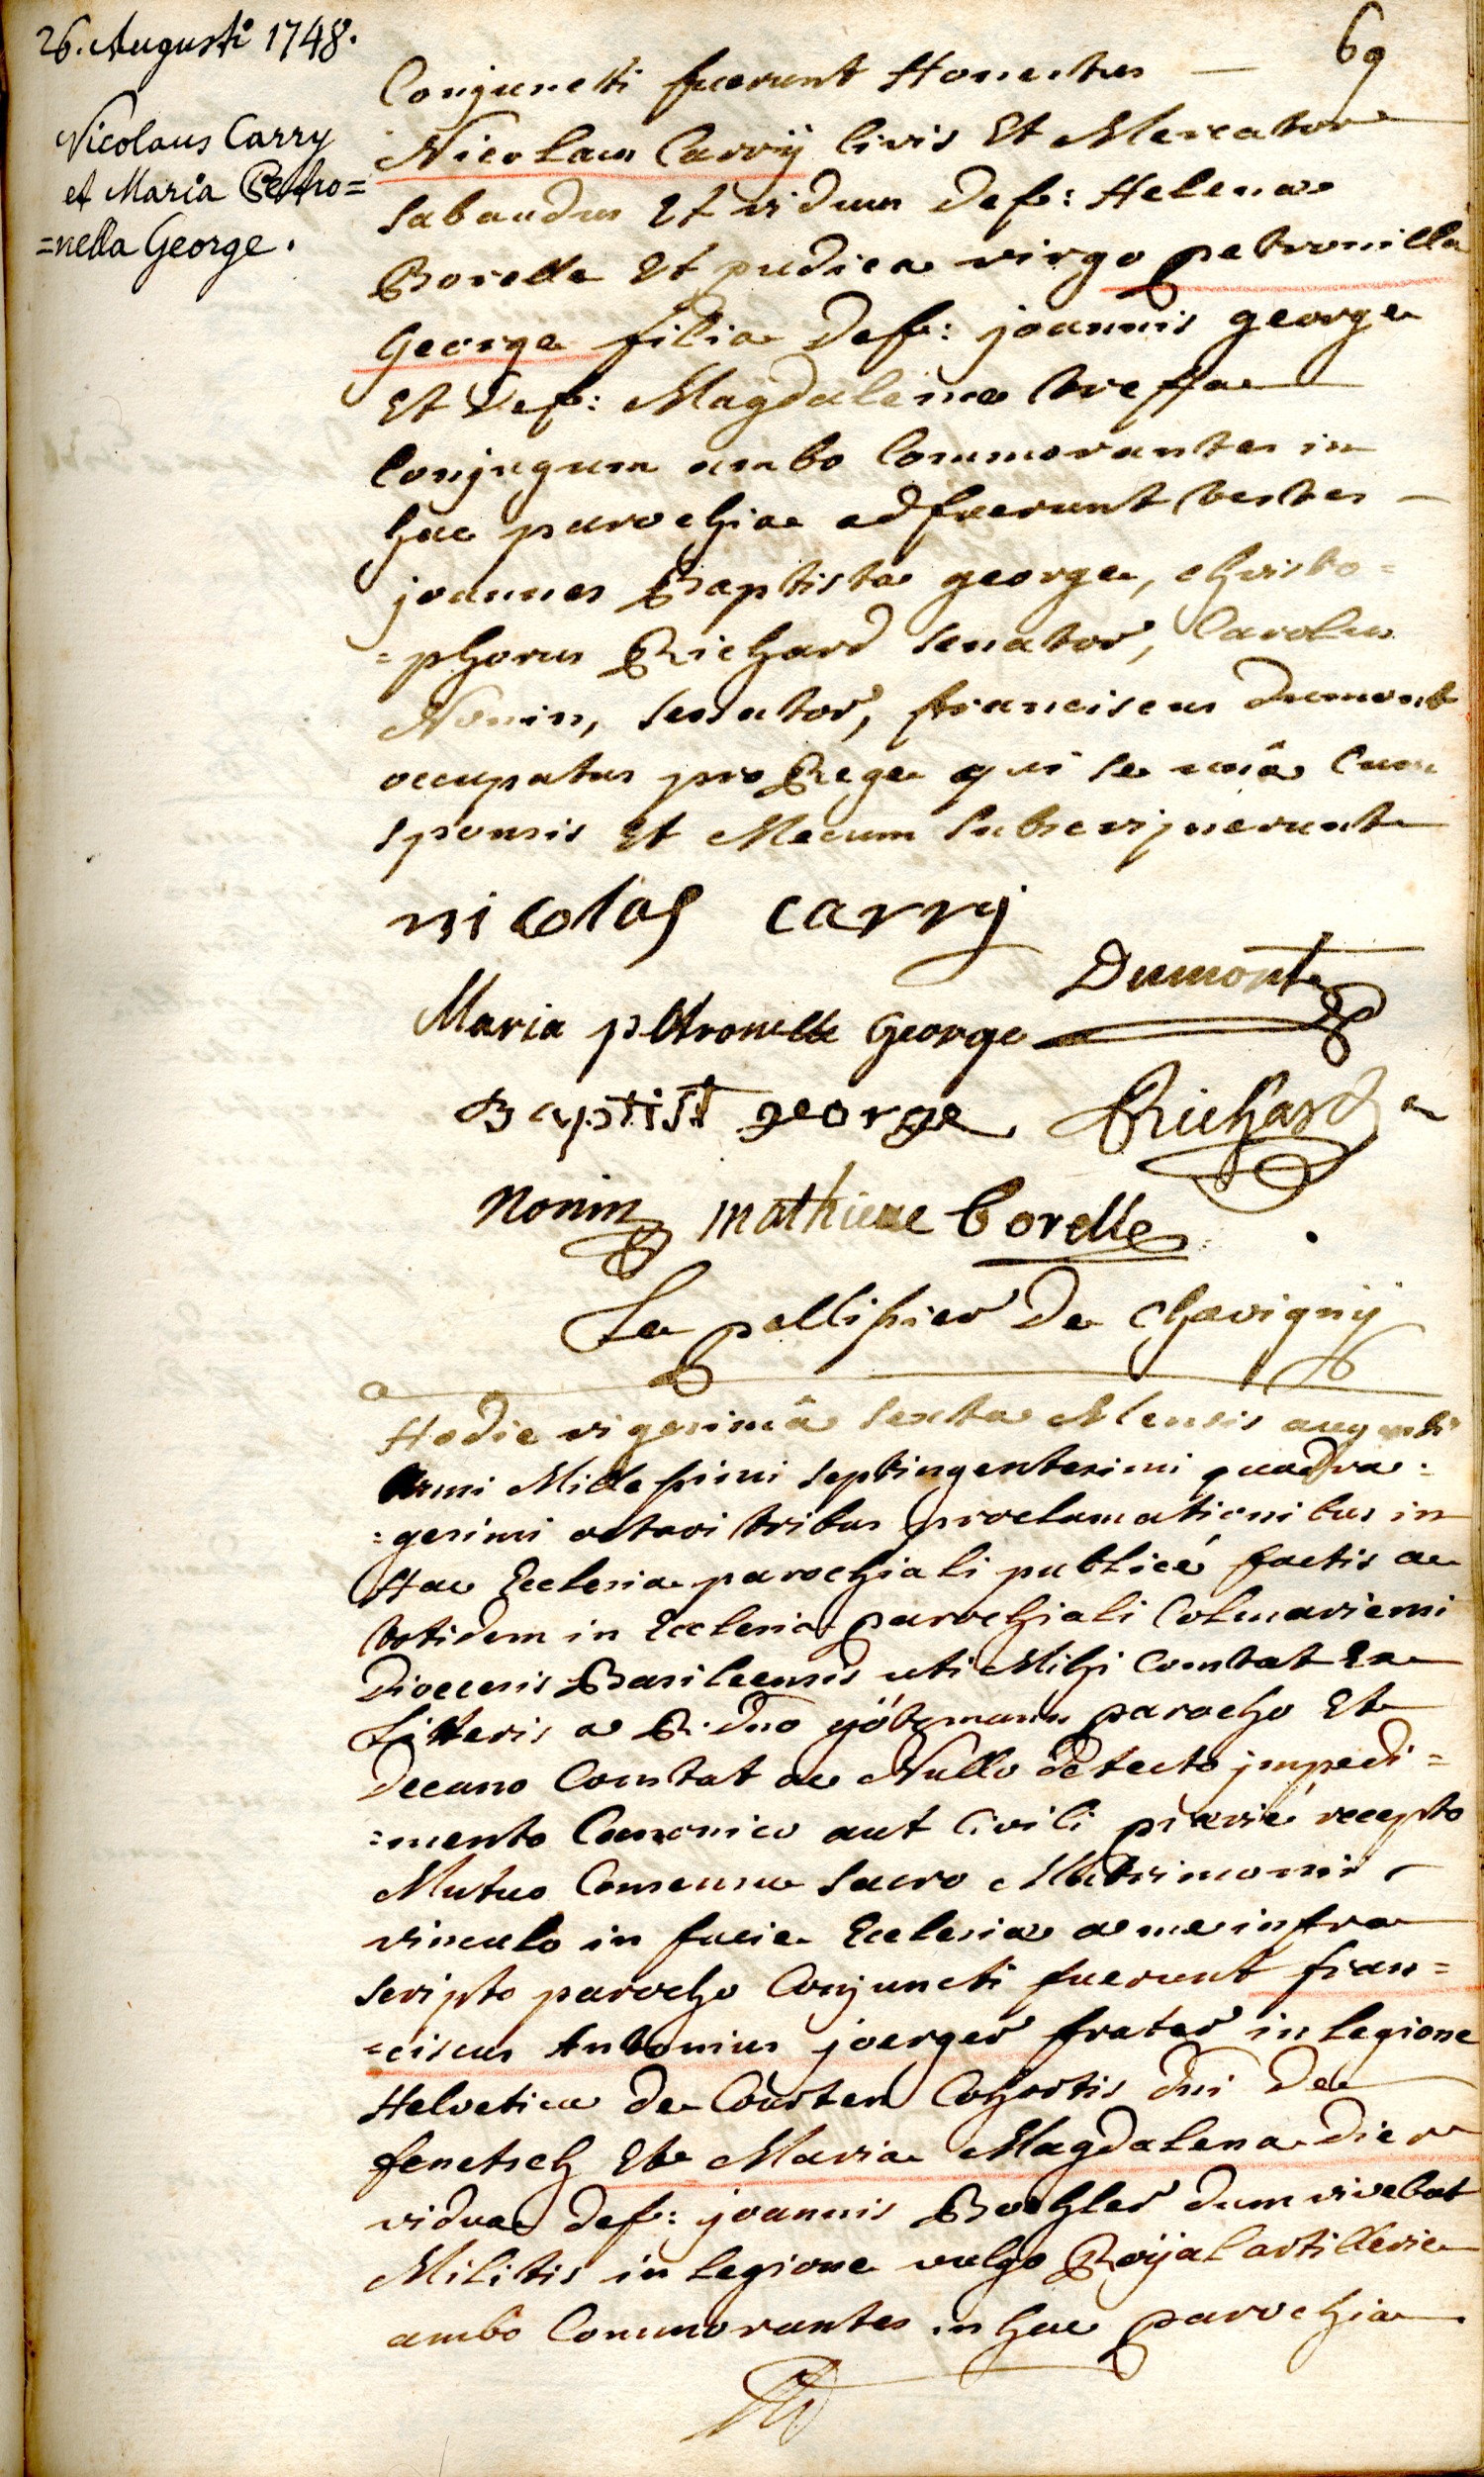 26. Augusti 1748.
Nicolaus Carry
et Maria Petro=
=nella George.
69
Conjuncti fuerunt Honestus —
Nicolaus Carrÿ Civis Et Mercator
Sabaudus Et viduus Def: Helenae
Borelle Et pudica virgo petronilla
George filia Def: joannis george
Et Def: Magdalenae treffa
Conjugum ambo Commorantes in
hac parochia adfuerunt testes —
joannes Baptista george, christo=
=phorus Richard Senator, Carolus
Nonin, Senator, franciscus Dumont
occupatus pro Rege qui se unâ Cum
sponsis Et Mecum Subscripserunt
nicolas carrij
Dumont
Maria petronelle George
Baptist george Richard
Nonin mathieue Borelle
Le pellissier De chavignÿ
Hodie vigesimâ sexta Mensis augusti
Anni Millesimi septingentesimi quadra=
=gesimi octavi tribus proclamationibus in
Hac Ecclesia parochiali publicé factis ac
totidem in Ecclesia parochiali Colmariensi
Dioecesis Basileensis uti Mihi Constat Ex
Litteris a R. Dno parocho Et
Decano Constat ac Nullo detecto jmpedi=
=mento Canonico aut Civili praevié recepto
Mutuo Consensu Sacro Matrimonii
vinculo in facie Ecclesiae a me infra
scripto parocho Conjuncti fuerunt fran=
=ciscus Antonius joerger frater in Legione
Helvetica De Courten Cohortis dni De
fenetsch Et Maria Magdalena Dier
vidua def: joannis Boehler dum vivebat
Militis in Legione vulgo Roÿal artillerie
ambo Commorantes in hac parochia